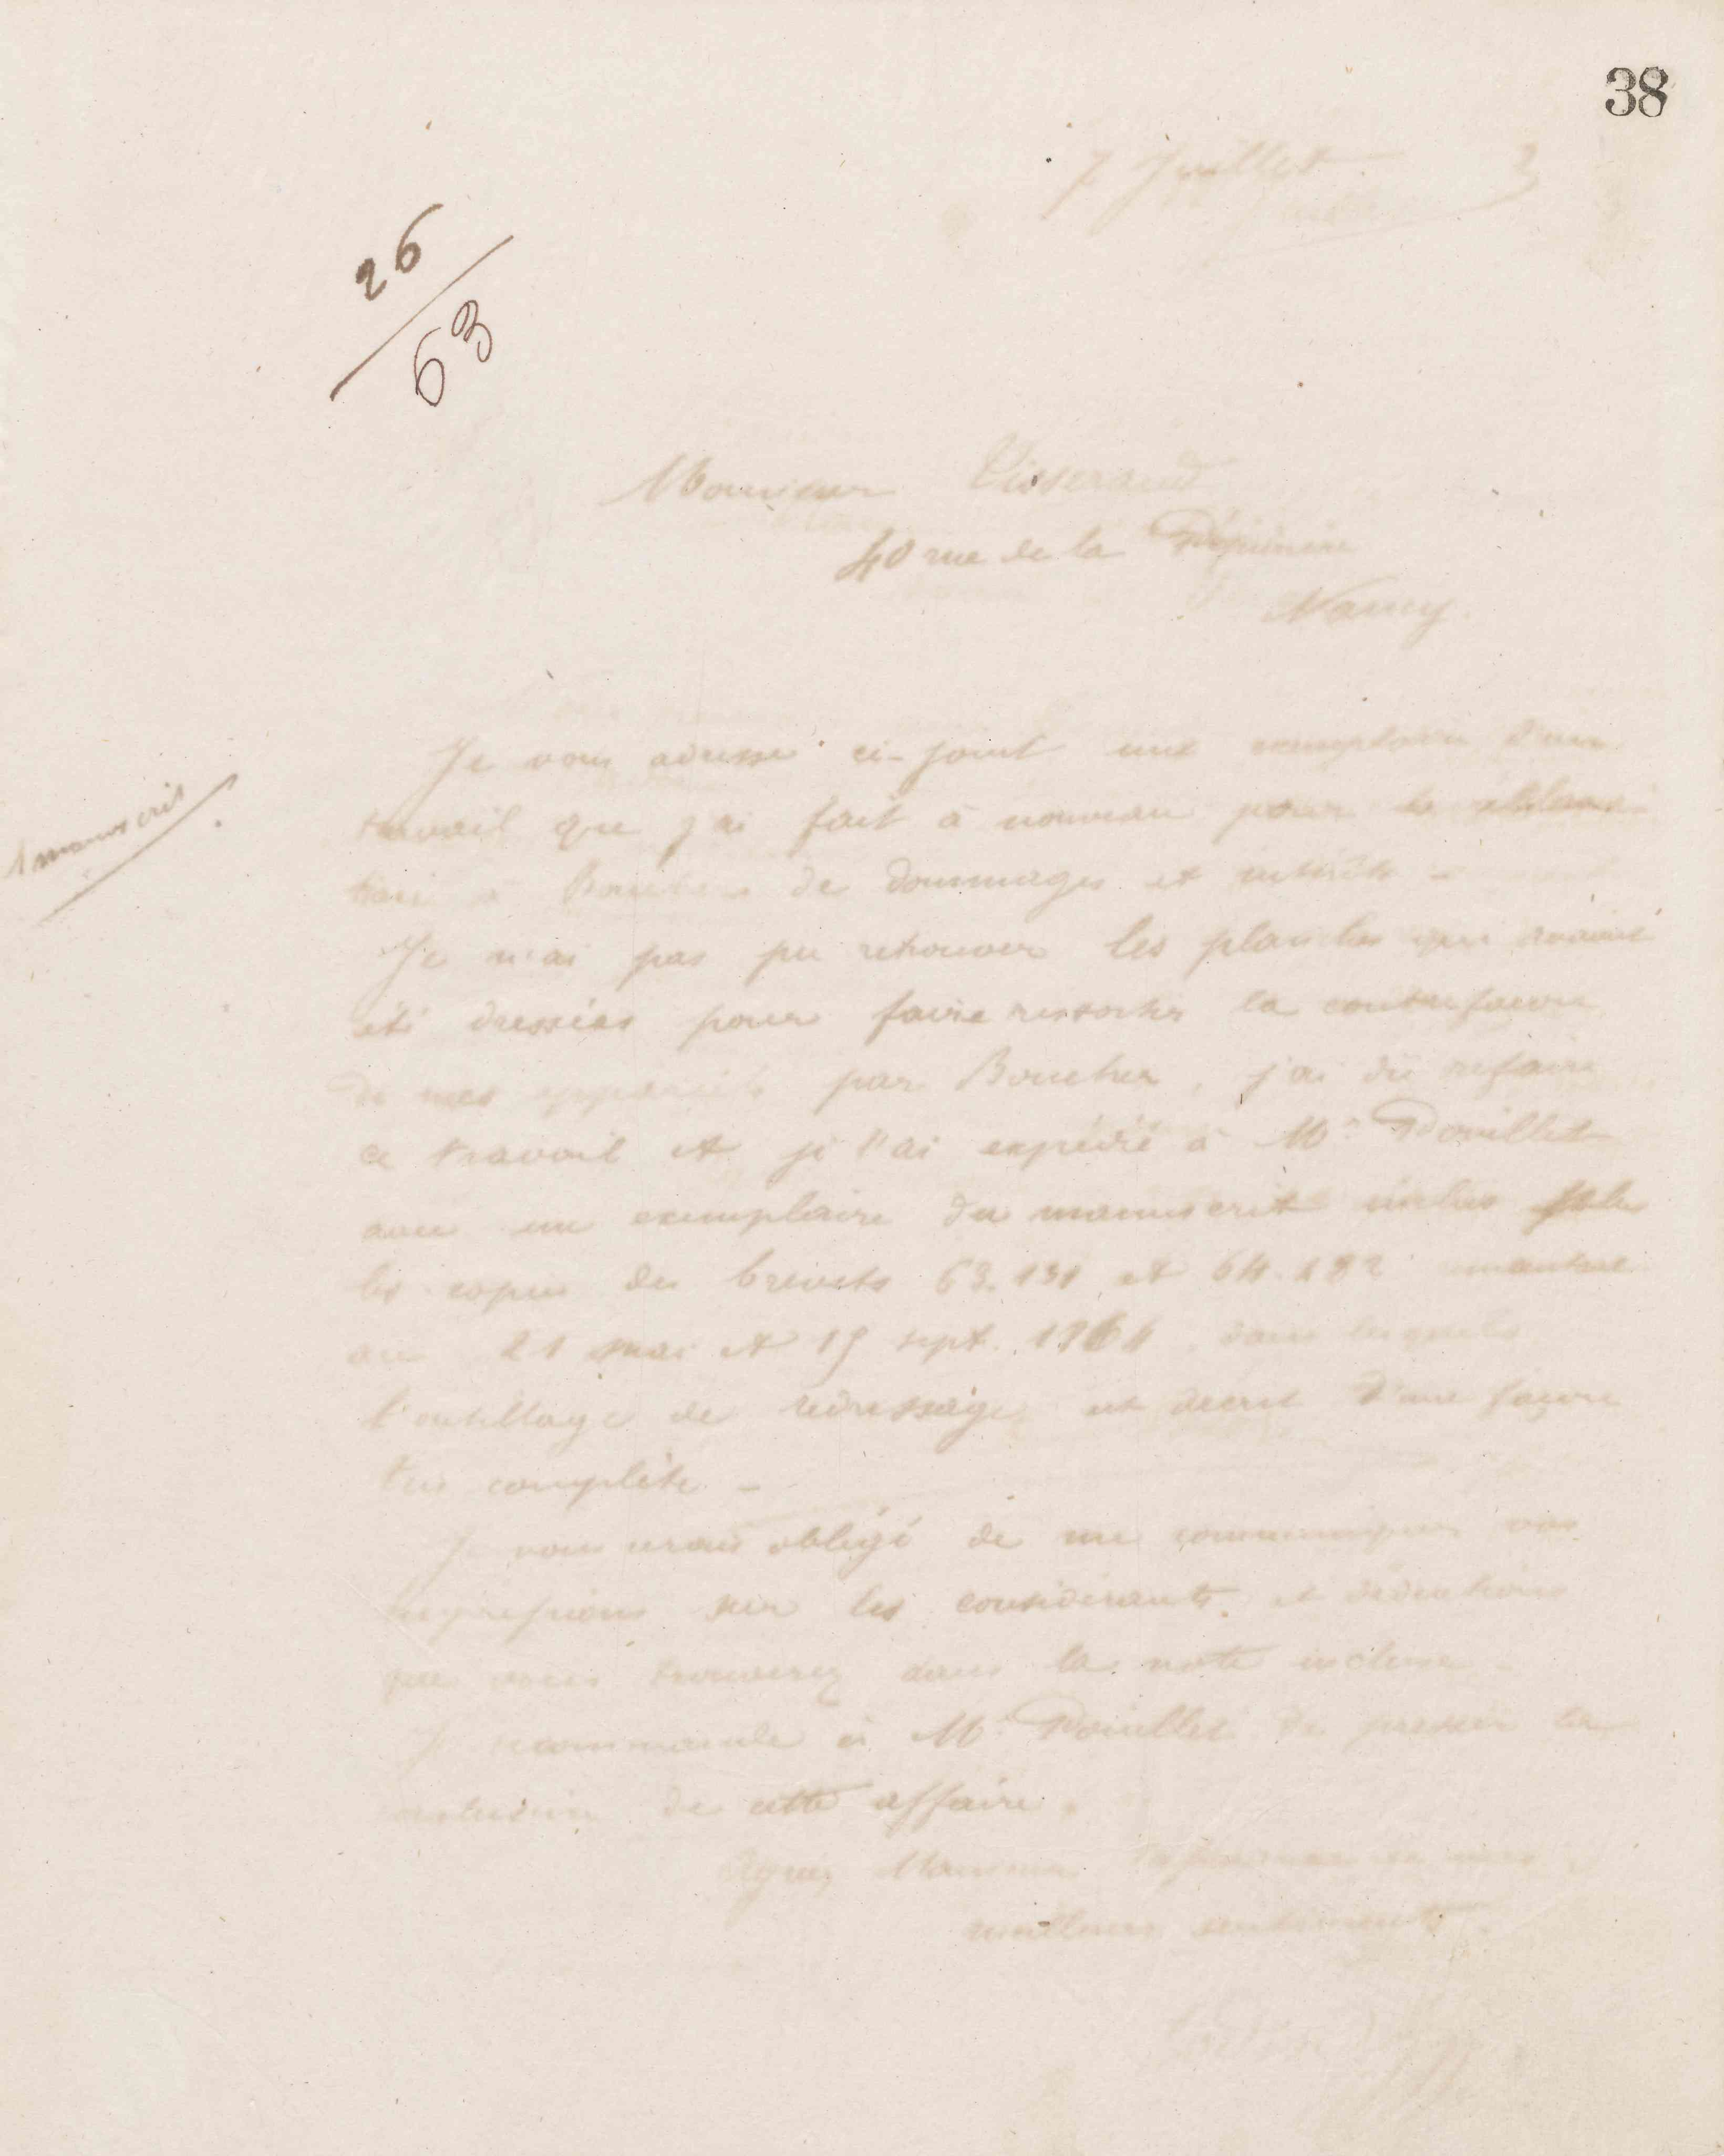 38
7 Juillet 3
26
63
Monsieur Tisserand
40 rue de la Pépinière
Nancy.
1 manuscrit
Je vous adresse ci-joint une exemplaire d'un
travail que j'ai fait à nouveau pour la
à de dommages et intérêts -
Je n'ai pas pu retrouver les planches qui avaient
été dressées pour faire ressortir la contrefaçon
de mes appareils par Boucher, j'ai dû refaire
ce travail et je l'ai expédié à Mr Pouillet
avec un exemplaire du manuscrit inclus
les copies des brevets 63.131 et 64.182
au 21 mai et 15 sept. 1864, dans lesquels
l'outillage de redressage est décrit d'une façon
très complète -
Je vous serais obligé de me communiquer vos
impressions sur les considérants et déductions
que vous trouverez dans la note incluse -
Je recommande à Mr Pouillet de presser la
de cette affaire.
Agréez Monsieur de mes
meilleurs sentiments